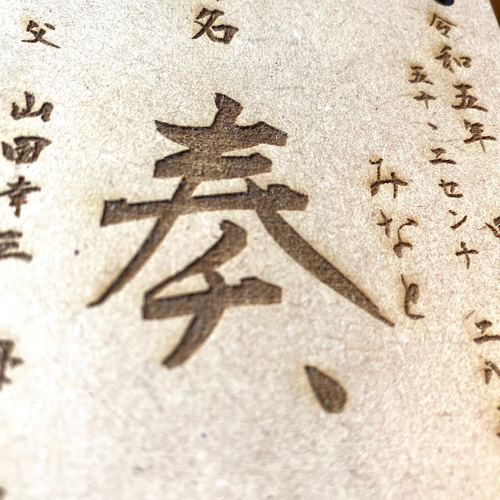 令和五年
五十、三センチ
みなと
名
奏
父
山田幸三
母